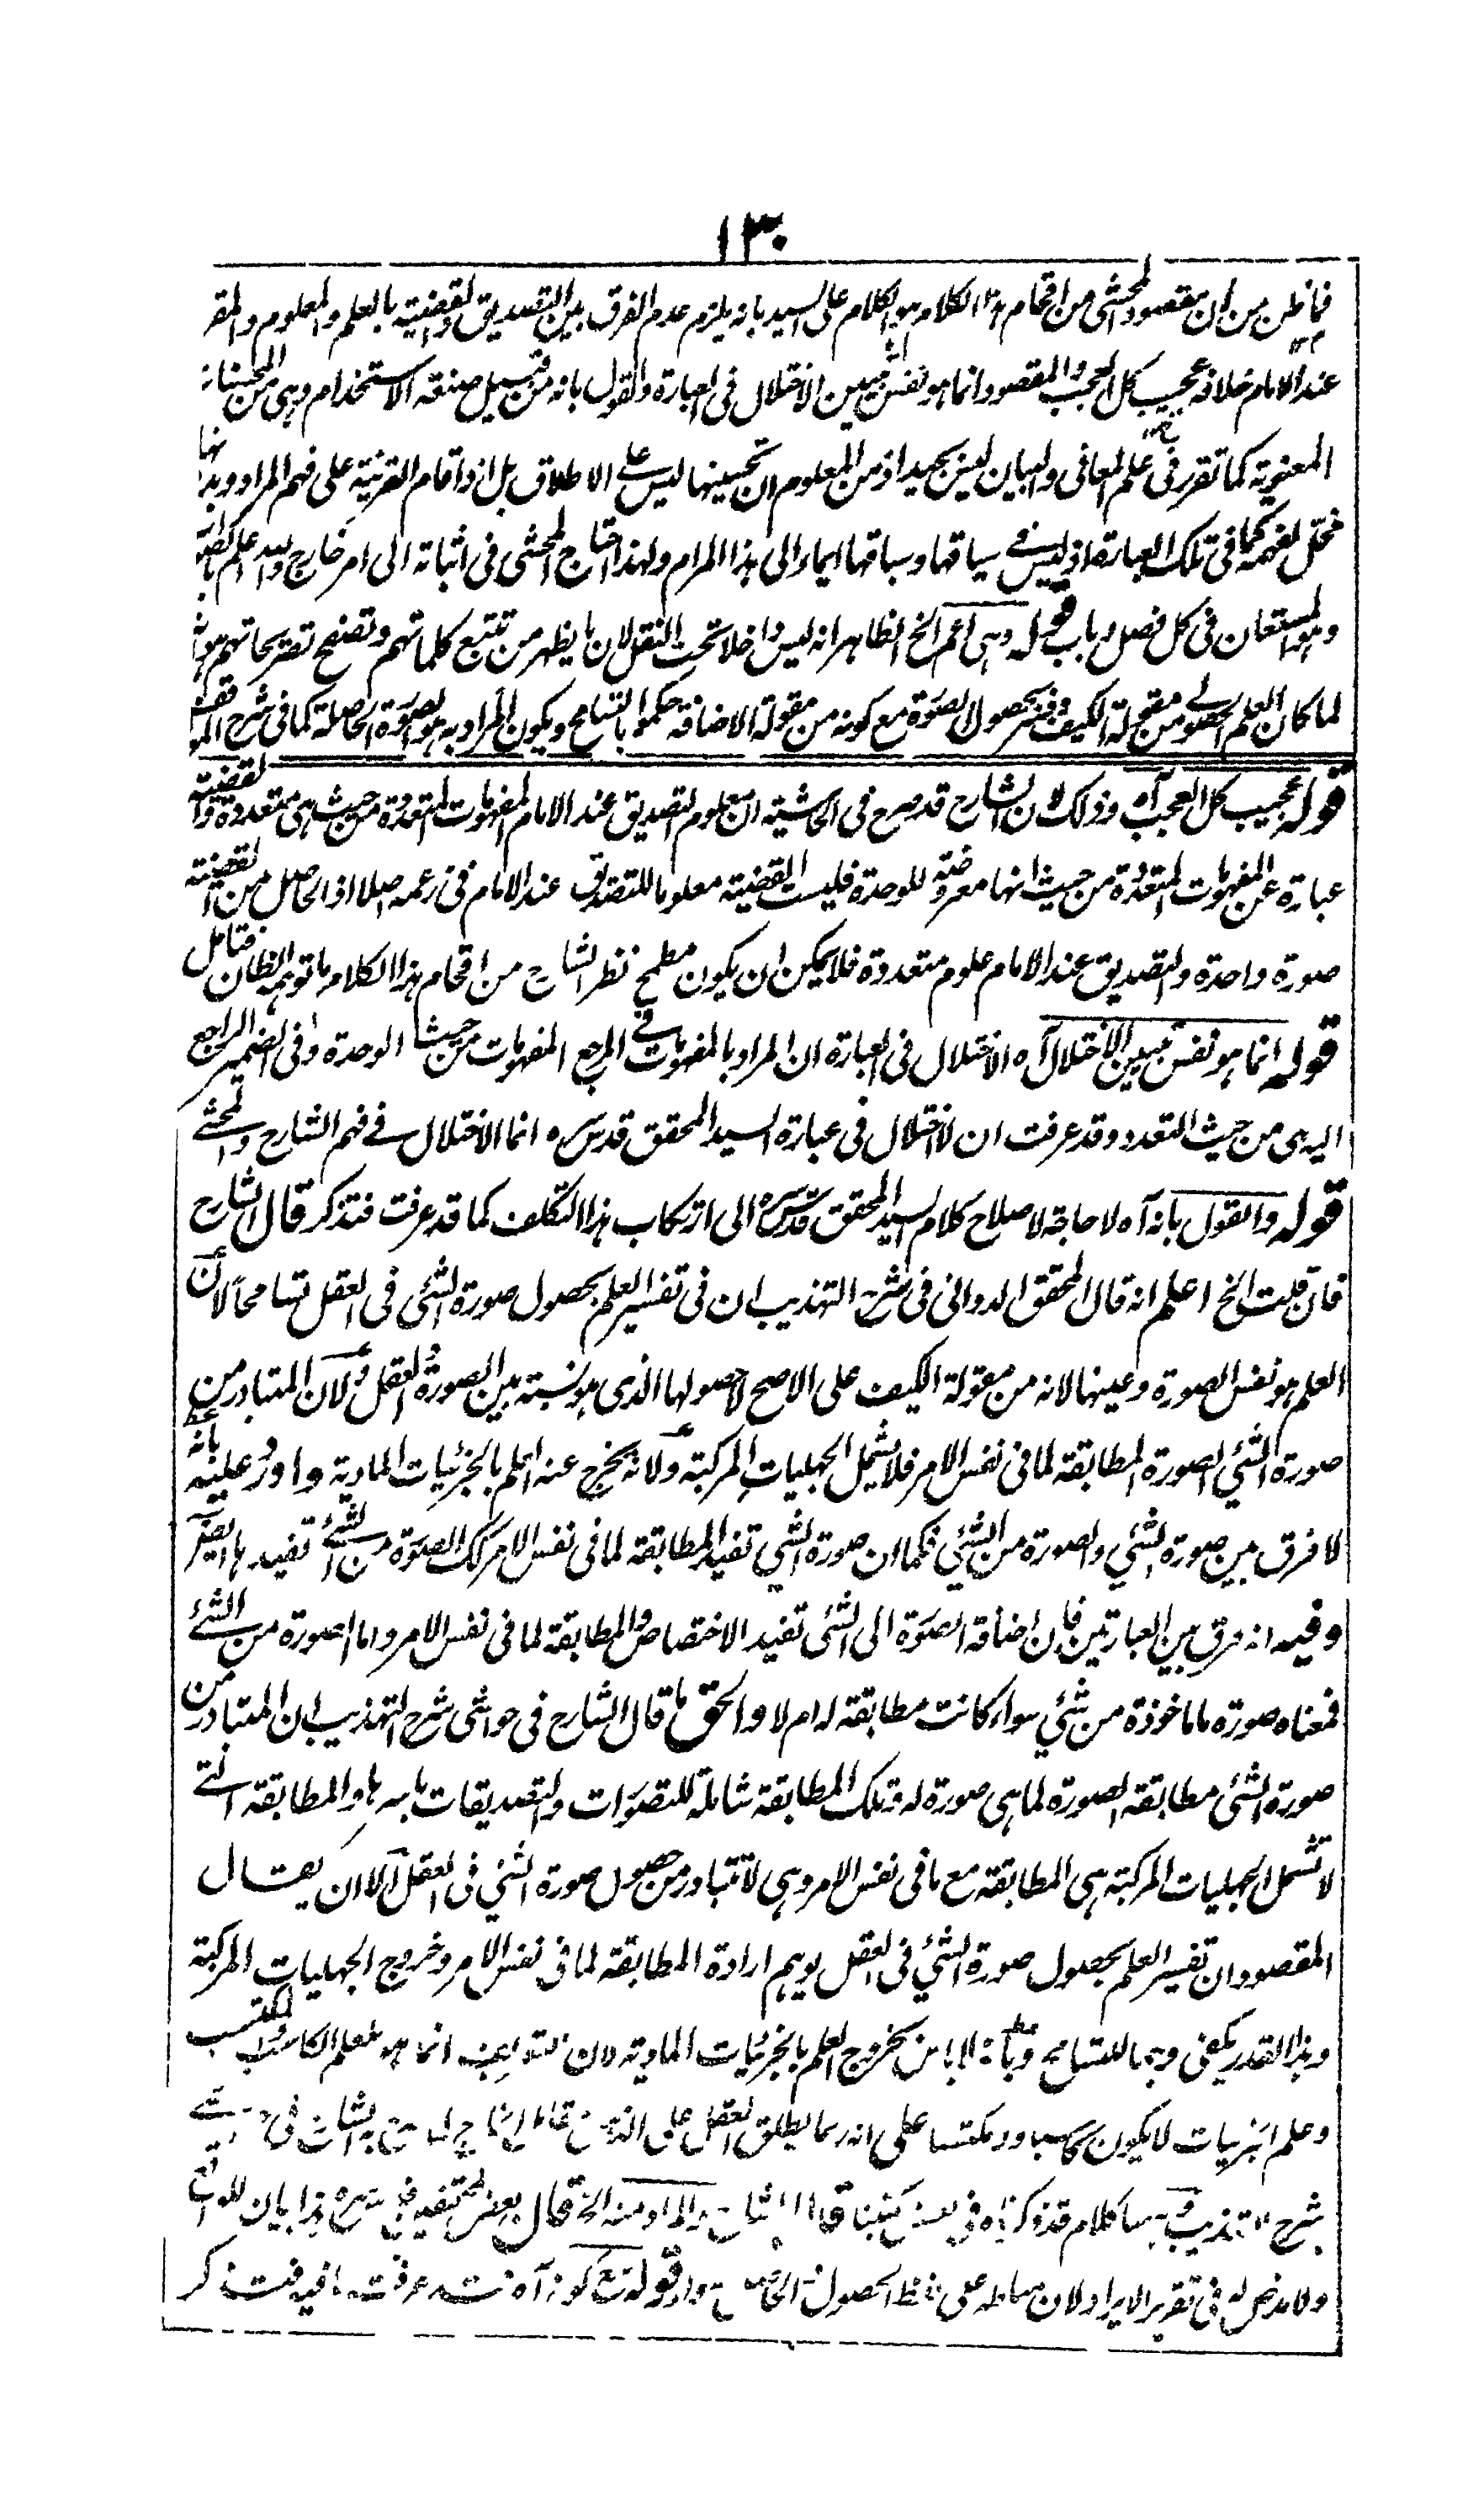 ١٣٠
فما ظن من ان مقصود المحشى من اقحام هذا الكلام هو الكلام على السيد بانه يلزم عدم الفرق بين التصديق والقضية بالعلم والمعلوم والمقرر
عند الامام خلافه عجيب كل العجب والمقصود انما هو نفس تبيين الاختلال فى العبارة والقول بانه من قبيل صنعة الاستخدام وهى من المحسنات
المعنوية كما تقرر فى علم المعانى والبيان ليس بجيد اذ من المعلوم ان تحسينها ليس على الاطلاق بل اذا قام القرينة على فهم المراد وبدونها
مخل لفهمه كما فى تلك العبارة اذ ليس فى سياقها وسباقها ايماء الى هذا المرام ولهذا احتاج المحشى فى اثباته الى امر خارج والله اعلم بالصواب
وهو المستعان فى كل فصل وباب قوله وهى اعم الخ الظاهر انه ليس داخلا تحت النقل لان ما يظهر من تتبع كلماتهم وتصفح تصريحاتهم هو انه
لما كان العلم الحصولى من مقولة الكيف ففسر بحصول الصورة مع كونه من مقولة الاضافة حكموا بالتسامح ويكون المراد به هو الصورة الحاصلة كما فى شرح المواقف
قوله عجيب كل العجب آه وذلك لان الشارح قد صرح فى الحاشية ان معلوم التصديق عند الامام المفهومات المتعددة من حيث هى متعددة والقضية
عبارة عن المفهومات المتعددة من حيث انها معروضة للوحدة فليست القضية معلوما للتصديق عند الامام فى زعمه اصلا اذ الحاصل من القضية
صورة واحدة والتصديق عند الامام علوم متعددة فلا يمكن ان يكون مطمح نظر الشارح من اقحام هذا الكلام ما توهمه الظان فتامل
قوله انما هو نفس تبيين الاختلال آه الاختلال فى العبارة ان المراد بالمفهومات فى المرجع المفهومات من حيث الوحدة وفى الضمير الراجع
اليه هى من حيث التعدد وقد عرفت ان لا اختلال فى عبارة السيد المحقق قدس سره انما الاختلال فى فهم الشارح والمحشى
قوله والقول بانه آه لا حاجة لاصلاح كلام السيد المحقق قدس سره الى ارتكاب هذا التكلف كما قد عرفت فتذكر قال الشارح
فان قلت الخ اعلم انه قال المحقق الدوانى فى شرح التهذيب ان فى تفسير العلم بحصول صورة الشئ فى العقل تسامحا لان
العلم هو نفس الصورة وعينها لانه من مقولة الكيف على الاصح لا حصولها الذى هو نسبة بين الصورة والعقل ولان المتبادر من
صورة الشئ الصورة المطابقة لما فى نفس الامر فلا يشمل الجهليات المركبة ولانه يخرج عنه العلم بالجزئيات المادية واورد عليه بانه
لا فرق بين صورة الشئ والصورة من الشئ فكما ان صورة الشئ تفيد المطابقة لما فى نفس الامر كك الصورة من الشئ تفيدها ايضا
وفيه انه فرق بين العبارتين فان اضافة الصورة الى الشئ تفيد الاختصاص والمطابقة لما فى نفس الامر واما الصورة من الشئ
فمعناه صورة ما ماخوذة من شئ سواء كانت مطابقة له ام لا والحق ما قال الشارح فى حواشى شرح التهذيب ان المتبادر من
صورة الشئ مطابقة الصورة لما هى صورة له وتلك المطابقة شاملة للتصورات والتصديقات باسرها والمطابقة التى
لا تشمل الجهليات المركبة هى المطابقة مع ما فى نفس الامر وهى لا تتبادر من حصول صورة الشئ فى العقل الا ان يقال
المقصود ان تفسير العلم بحصول صورة الشئ فى العقل يوهم ارادة المطابقة لما فى نفس الامر وخروج الجهليات المركبة
وهذا القدر يكفى وجها للتسامح وبانه لا باس بخروج العلم بالجزئيات المادية لان المقصود انما هو العلم الكاسب والمكتسب
وعلم الجزئيات لا يكون كاسبا ومكتسبا على انه ربما يطلق العقل على الذهن كما صرح به الشارح فى حواشى
شرح التهذيب وههنا كلام قد ذكرناه فى بعض كتبنا قال الشارح والمراد منه الخ قال بعض المحققين فى شرحه هذا بيان للواقع
ولا مدخل له فى تقرير الايراد لان مناطه على لفظ الحصول قوله مع كونه آه قد عرفت ما فيه فتذكر